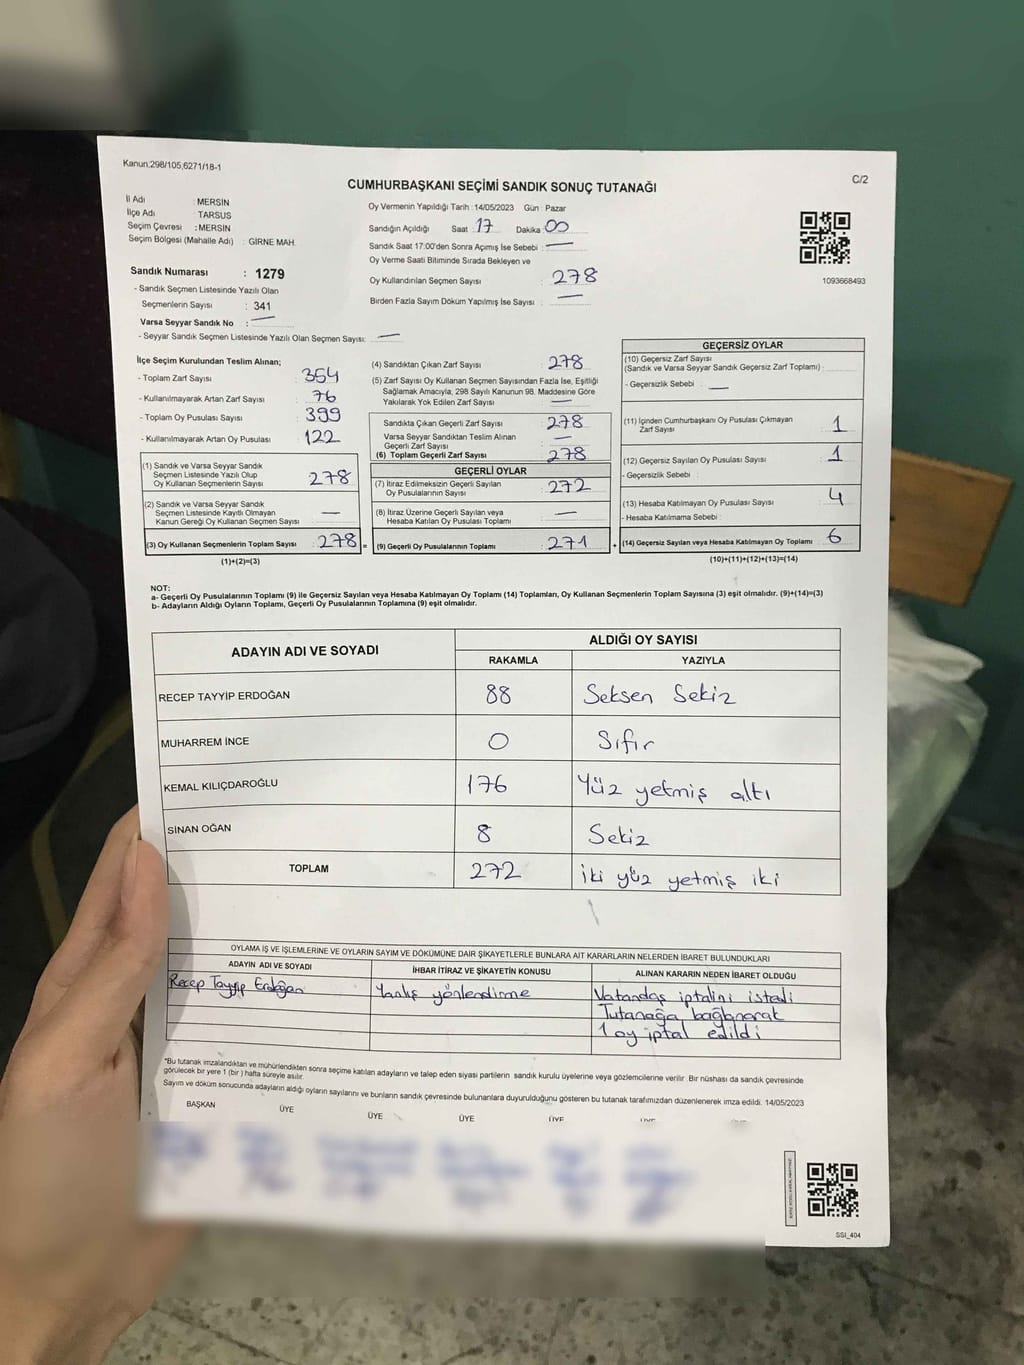 Kanun.298/105,6271/18-1
C/2
CUMHURBAŞKANI SEÇİMİ SANDIK SONUÇ TUTANAĞI
İl Adı : MERSİN
İlçe Adı TARSUS
Seçim Çevresi : MERSİN
Seçim Bölgesi (Mahalle Adı) : GİRNE MAH.
Sandık Numarası : 1279
- Sandık Seçmen Listesinde Yazılı Olan
Seçmenlerin Sayısı : 341
Varsa Seyyar Sandık No : —
- Seyyar Sandık Seçmen Listesinde Yazılı Olan Seçmen Sayısı: —
Oy Vermenin Yapıldığı Tarih : 14/05/2023 Gün : Pazar
Sandığın Açıldığı Saat : 17 Dakika : 00
Sandık Saat 17:00'den Sonra Açımış İse Sebebi : —
Oy Verme Saati Bitiminde Sırada Bekleyen ve
Oy Kullandırılan Seçmen Sayısı : 278
Birden Fazla Sayım Döküm Yapılmış İse Sayısı : —
1093668493
İlçe Seçim Kurulundan Teslim Alınan;
- Toplam Zarf Sayısı : 354
- Kullanılmayarak Artan Zarf Sayısı : 76
- Toplam Oy Pusulası Sayısı : 399
- Kullanılmayarak Artan Oy Pusulası : 122
(1) Sandık ve Varsa Seyyar Sandık
Seçmen Listesinde Yazılı Olup
Oy Kullanan Seçmenlerin Sayısı : 278
(2) Sandık ve Varsa Seyyar Sandık
Seçmen Listesinde Kayıtlı Olmayan
Kanun Gereği Oy Kullanan Seçmen Sayısı : —
(3) Oy Kullanan Seçmenlerin Toplam Sayısı : 278 =
(1)+(2)=(3)
(4) Sandıktan Çıkan Zarf Sayısı : 278
(5) Zarf Sayısı Oy Kullanan Seçmen Sayısından Fazla İse, Eşitliği
Sağlamak Amacıyla, 298 Sayılı Kanunun 98. Maddesine Göre
Yakılarak Yok Edilen Zarf Sayısı : —
Sandıkta Çıkan Geçerli Zarf Sayısı : 278
Varsa Seyyar Sandıktan Teslim Alınan
Geçerli Zarf Sayısı : —
(6) Toplam Geçerli Zarf Sayısı : 278
GEÇERLİ OYLAR
(7) İtiraz Edilmeksizin Geçerli Sayılan
Oy Pusulalarının Sayısı : 272
(8) İtiraz Üzerine Geçerli Sayılan veya
Hesaba Katılan Oy Pusulası Toplamı : —
(9) Geçerli Oy Pusulalarının Toplamı : 271 +
GEÇERSİZ OYLAR
(10) Geçersiz Zarf Sayısı
(Sandık ve Varsa Seyyar Sandık Geçersiz Zarf Toplamı) :
- Geçersizlik Sebebi : —
(11) İçinden Cumhurbaşkanı Oy Pusulası Çıkmayan
Zarf Sayısı : 1
(12) Geçersiz Sayılan Oy Pusulası Sayısı : 1
- Geçersizlik Sebebi :
(13) Hesaba Katılmayan Oy Pusulası Sayısı : 4
- Hesaba Katılmama Sebebi :
(14) Geçersiz Sayılan veya Hesaba Katılmayan Oy Toplamı : 6
(10)+(11)+(12)+(13)=(14)
NOT:
a- Geçerli Oy Pusulalarının Toplamı (9) ile Geçersiz Sayılan veya Hesaba Katılmayan Oy Toplamı (14) Toplamları, Oy Kullanan Seçmenlerin Toplam Sayısına (3) eşit olmalıdır. (9)+(14)=(3)
b- Adayların Aldığı Oyların Toplamı, Geçerli Oy Pusulalarının Toplamına (9) eşit olmalıdır.
ADAYIN ADI VE SOYADI ALDIĞI OY SAYISI
RAKAMLA YAZIYLA
RECEP TAYYİP ERDOĞAN 88 Seksen Sekiz
MUHARREM İNCE 0 Sıfır
KEMAL KILIÇDAROĞLU 176 Yüz yetmiş altı
SİNAN OĞAN 8 Sekiz
TOPLAM 272 iki yüz yetmiş iki
OYLAMA İŞ VE İŞLEMLERİNE VE OYLARIN SAYIM VE DÖKÜMÜNE DAİR ŞİKAYETLERLE BUNLARA AİT KARARLARIN NELERDEN İBARET BULUNDUKLARI
ADAYIN ADI VE SOYADI İHBAR İTİRAZ VE ŞİKAYETİN KONUSU ALINAN KARARIN NEDEN İBARET OLDUĞU
Recep Tayyip Erdoğan Yanlış yönlendirme Vatandaş iptalini istedi
Tutanağa bağlanarak
1 oy iptal edildi
*Bu tutanak imzalandıktan ve mühürlendikten sonra seçime katılan adayların ve talep eden siyasi partilerin sandık kurulu üyelerine veya gözlemcilerine verilir. Bir nüshası da sandık çevresinde
görülecek bir yere 1 (bir) hafta süreyle asılır.
Sayım ve döküm sonucunda adayların aldığı oyların sayılarını ve bunların sandık çevresinde bulunanlara duyurulduğunu gösteren bu tutanak tarafımızdan düzenlenerek imza edildi. 14/05/2023
BAŞKAN ÜYE ÜYE ÜYE ÜYE ÜYE
SSI_404